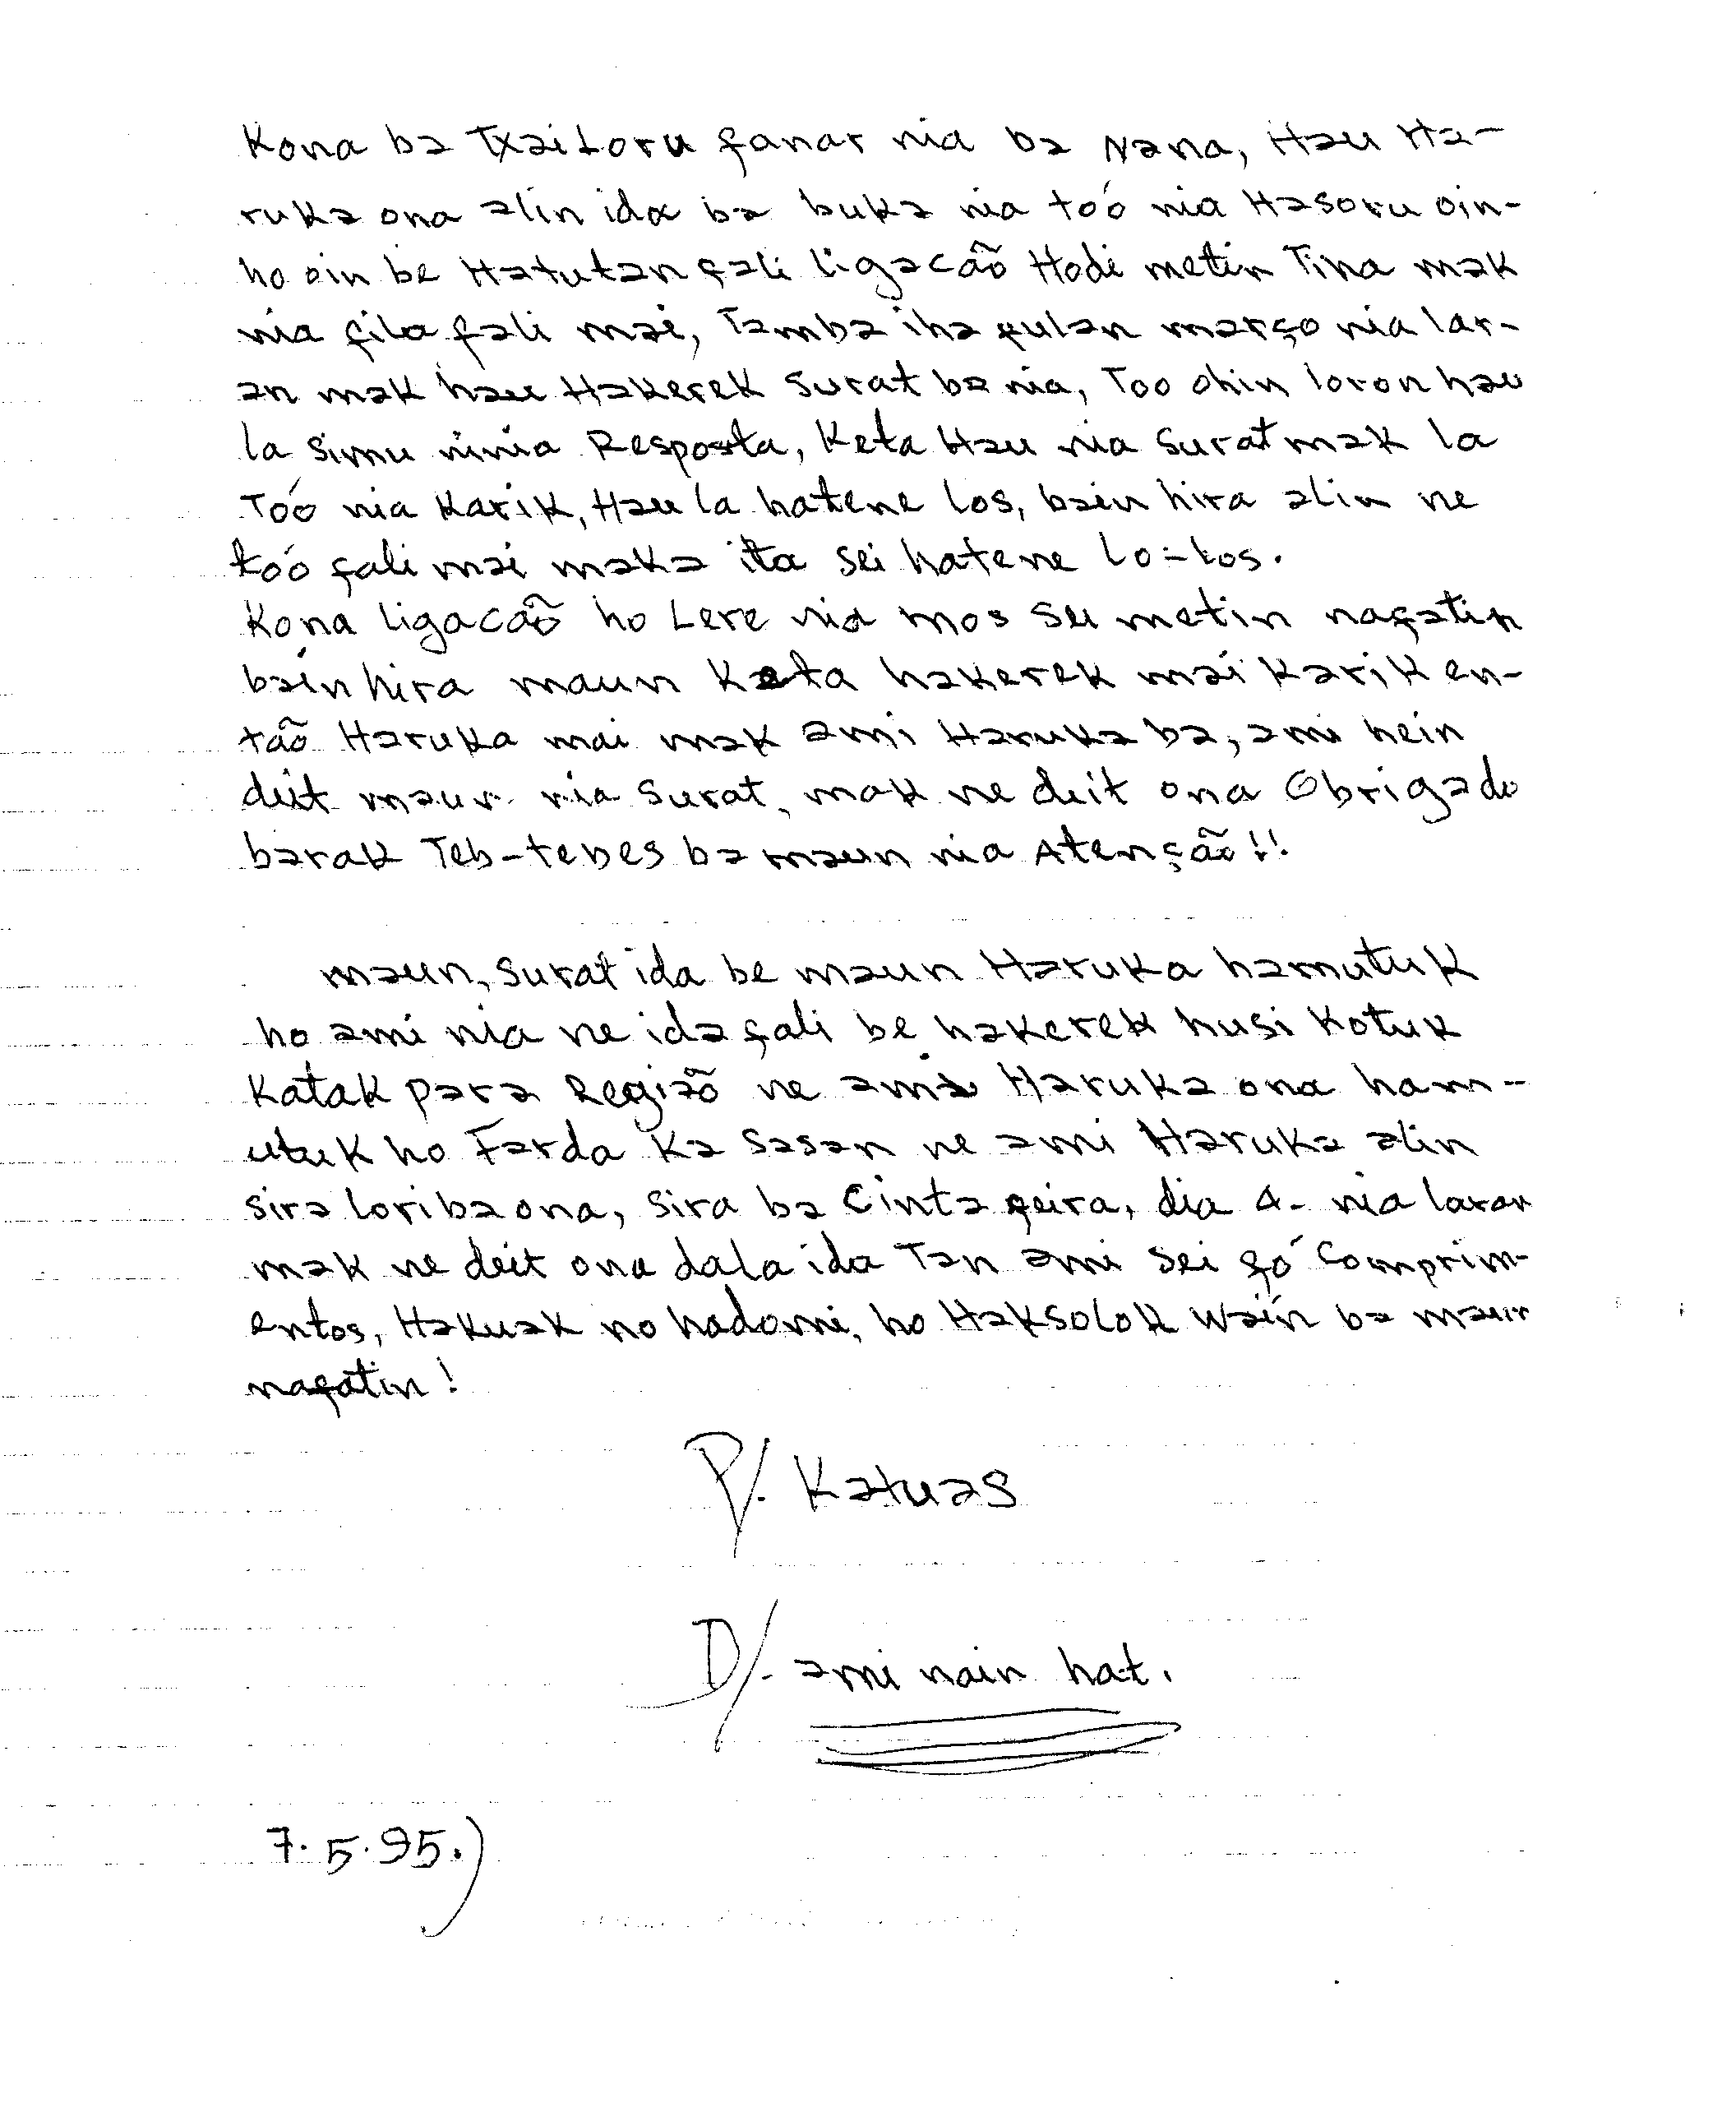 Kona ba Txai Loru fanar nia ba Nana, Hau Ha-
ruka ona alin ida ba buka nia toó nia Hasoru oin-
ho oin be Hatutan fali ligacaõ Hodi metin Tina mak
nia fila fali mai, Tamba iha fulan março nia lar-
an mak hau Hakerek surat ba nia, Too ohin loron hau
la simu ninia Resposta, Keta Hau nia surat mak la
Toó nia Karik, Hau la hatene los, bain hira alin ne
toó fali mai maka ita sei hatene lo-los.
Kona ligacaõ ho Lere nia mos sei metin nafatin
báin hira maun Keta hakerek mai Karik en-
taõ Haruka mai mak ami Haruka ba, ami hein
deit maun nia surat, mak ne deit ona Obrigado
barak Teb-tebes ba maun nia Atençaõ!!
maun, surat ida be maun Haruka hamutuk
ho ami nia ne ida fali be hakerek husi Kotuk
Katak para Regiaõ ne ami Haruka ona ham-
utuk ho Farda Ka Sasan ne ami Haruka alin
sira lori ba ona, sira ba Cinta feira, dia 4- nia laran
mak ne deit ona dala ida Tan ami sei fó Comprim-
entos, Hakuak no hadomi, ho Haksolok Waín ba maun
nafatin!
P/. Katuas
D/- ami nain hat.
7.5.95.)